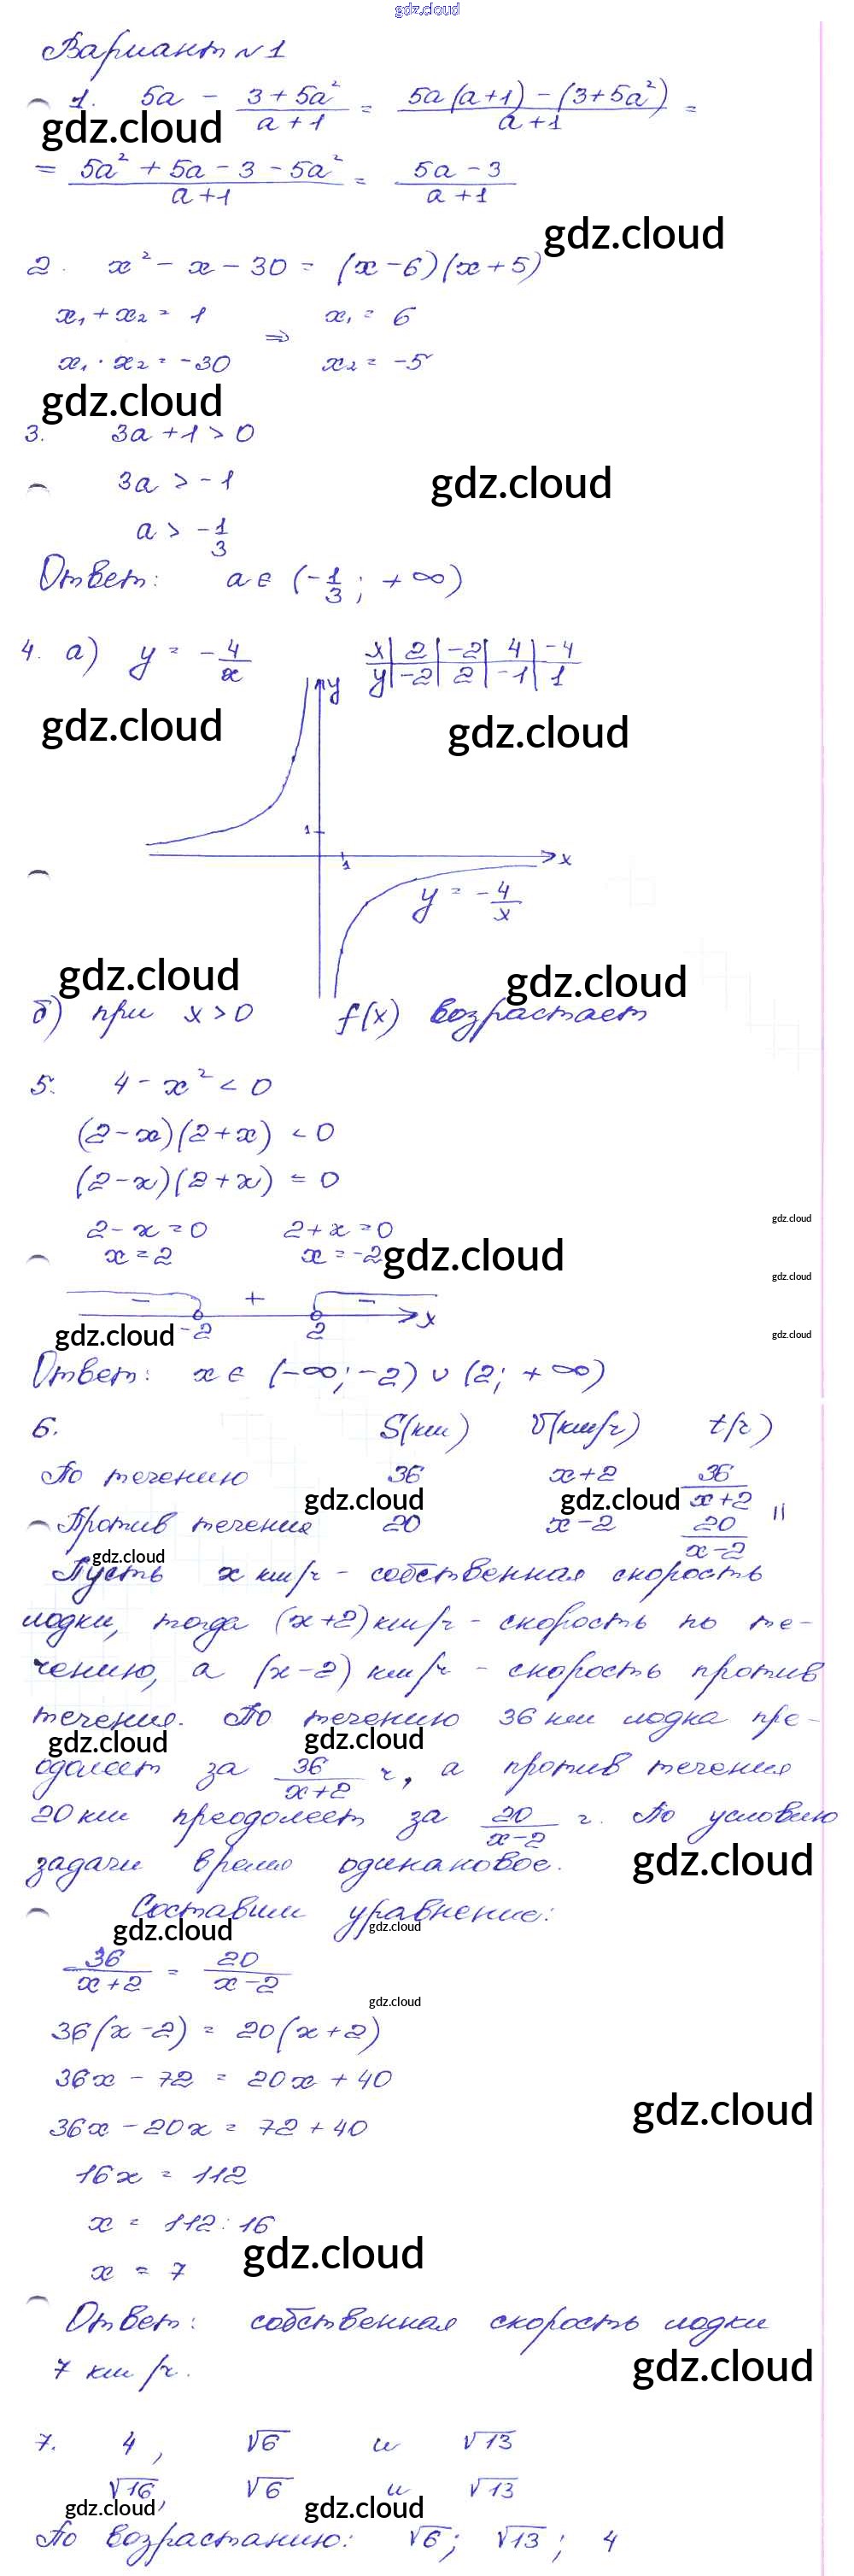 gdz.cloud
Вариант №1
1. 5a - (3+5a²)/(a+1) = (5a(a+1)-(3+5a²))/(a+1) =
gdz.cloud
= (5a²+5a-3-5a²)/(a+1) = (5a-3)/(a+1)
gdz.cloud
2. x²-x-30 = (x-6)(x+5)
x₁+x₂ = 1 ⇒ x₁ = 6
x₁·x₂ = -30 x₂ = -5
gdz.cloud
3. 3a+1 > 0
3a > -1 gdz.cloud
a > -1/3
Ответ: a∈(-1/3; +∞)
4. а) y = -4/x
x | 2 | -2 | 4 | -4
y | -2 | 2 | -1 | 1
y
gdz.cloud gdz.cloud
1
x
1
y = -4/x
gdz.cloud gdz.cloud
б) при x>0 f(x) возрастает
5. 4-x² < 0
(2-x)(2+x) < 0
(2-x)(2+x) = 0
gdz.cloud
2-x=0 2+x=0
x=2 x=-2 gdz.cloud
gdz.cloud
- + - x
-2 2
gdz.cloud gdz.cloud
Ответ: x∈(-∞;-2)∪(2;+∞)
6. S(км) V(км/ч) t(ч)
По течению 36 x+2 36/(x+2)
gdz.cloud gdz.cloud
Против течения 20 x-2 20/(x-2) ||
gdz.cloud
Пусть x км/ч - собственная скорость
лодки, тогда (x+2)км/ч - скорость по те-
чению, а (x-2) км/ч - скорость против
течения. По течению 36 км лодка пре-
gdz.cloud gdz.cloud
одолеет за 36/(x+2) ч, а против течения
20 км преодолеет за 20/(x-2) ч. По условию
задачи время одинаковое. gdz.cloud
Составим уравнение:
gdz.cloud gdz.cloud
36/(x+2) = 20/(x-2)
gdz.cloud
36(x-2) = 20(x+2)
36x - 72 = 20x + 40
gdz.cloud
36x - 20x = 72 + 40
16x = 112
x = 112:16
gdz.cloud
x = 7
Ответ: собственная скорость лодки
7 км/ч. gdz.cloud
7. 4, √6 и √13
√16, √6 и √13
gdz.cloud gdz.cloud
По возрастанию: √6; √13; 4